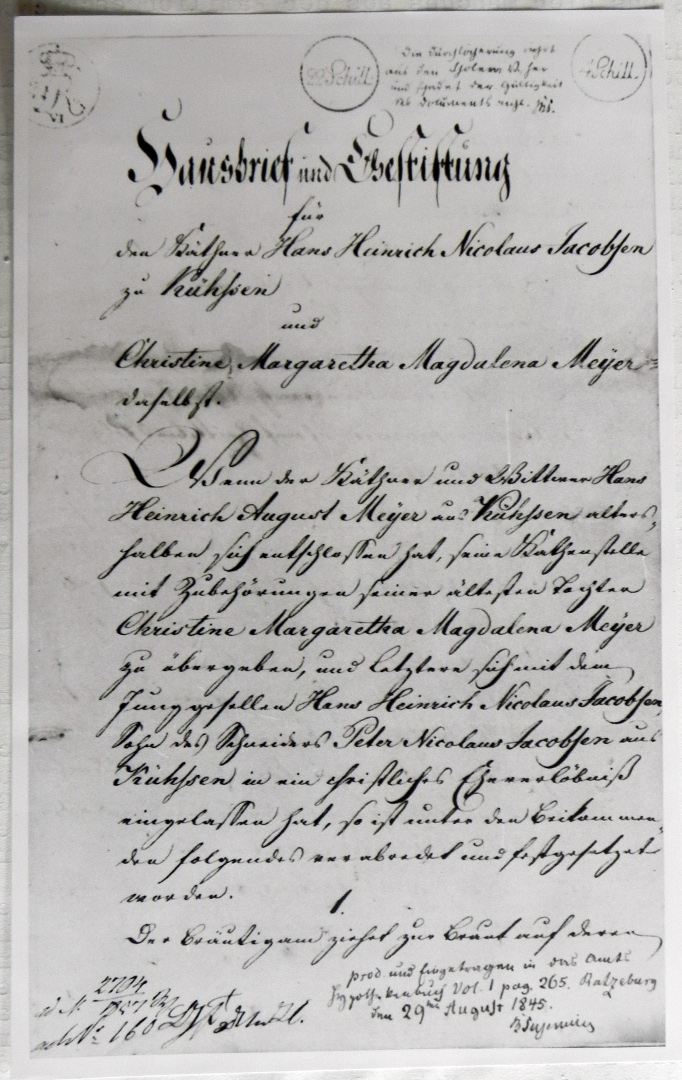 22 Schill.
4 Schill.
Die Durchlöcherung rührt
aus den Spolem 42 her
und schadet der Gültigkeit
des Dokuments nicht.
Hausbrief und Ehestiftung
für
den Käthner Hans Heinrich Nicolaus Jacobsen
zu Kühsen
und
Christine Margaretha Magdalena Meÿer
daselbst.
Wenn der Käthner und Wittwer Hans
Heinrich August Meÿer aus Kühssen alters-
halben sich entschlossen hat, seine Kathenstelle
mit Zubehörungen seiner ältesten Tochter
Christine Margaretha Magdalena Meÿer
zu übergeben, und letztere sich mit dem
Junggesellen Hans Heinrich Nicolaus Jacobsen,
Sohn des Schneiders Peter Nicolaus Jacobsen aus
Kühssen in ein christliches Eheverlöbniß
eingelassen hat, so ist unter den Beikommen-
den folgendes verabredet und festgesetzet
worden.
1.
Der Bräutigam ziehet zur Braut auf deren
prod. und eingetragen in das Amts
Hypothekenbuch Vol. I pag. 265. Ratzeburg
den 29ten August 1845.
ad N. 2704
160